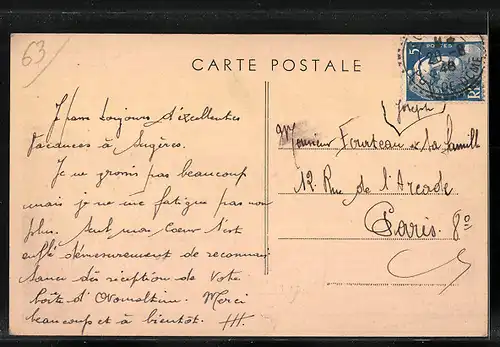 63
CARTE POSTALE
Je passe toujours d'excellentes
vacances à Angères.
Je ne grossis pas beaucoup
mais je ne me fatigue pas non
plus. Seul mon Coeur s'est
enflé démesurement de reconnais
sance dès réception de Votre
boîte d'Ovomaltine. Merci
beaucoup et à bientôt.
5F
POSTES
RF
Joseph
Monsieur Fourteau & Sa famille
12 Rue de l'Arcade
Paris. 8e